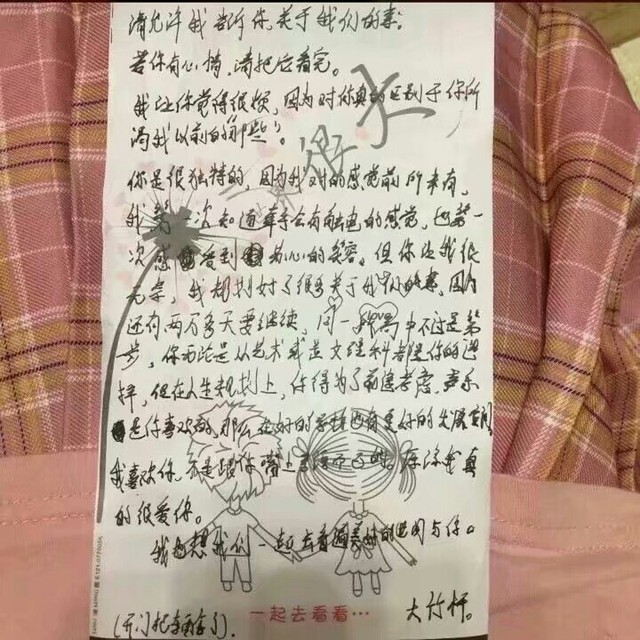 请允许我告诉你,关于我们的事。
若你有心情,请把它看完。
我让你觉得很烦,因为对你真的区别于你所
谓我以前的“那些”。
你是很独特的,因为我对的感觉前所未有,
我第一次知道牵手会有触电的感觉,也第一
次感受到为心的笑容。但你让我很
无奈,我规划好了很多关于我们的事,因为
还有两万多天要继续,同一高中不过是第一
步,你是从艺术或是文理科都是你的选
择,但在人生规划上,你得为了前途考虑,音乐
是你喜欢的,那么在好的学校也有更好的发展空间
我喜欢你,不是跟你嘴上
的很爱你。
我想我们一起去看遍美好的世间与你。
很大
一起去看看…
(开门把手)